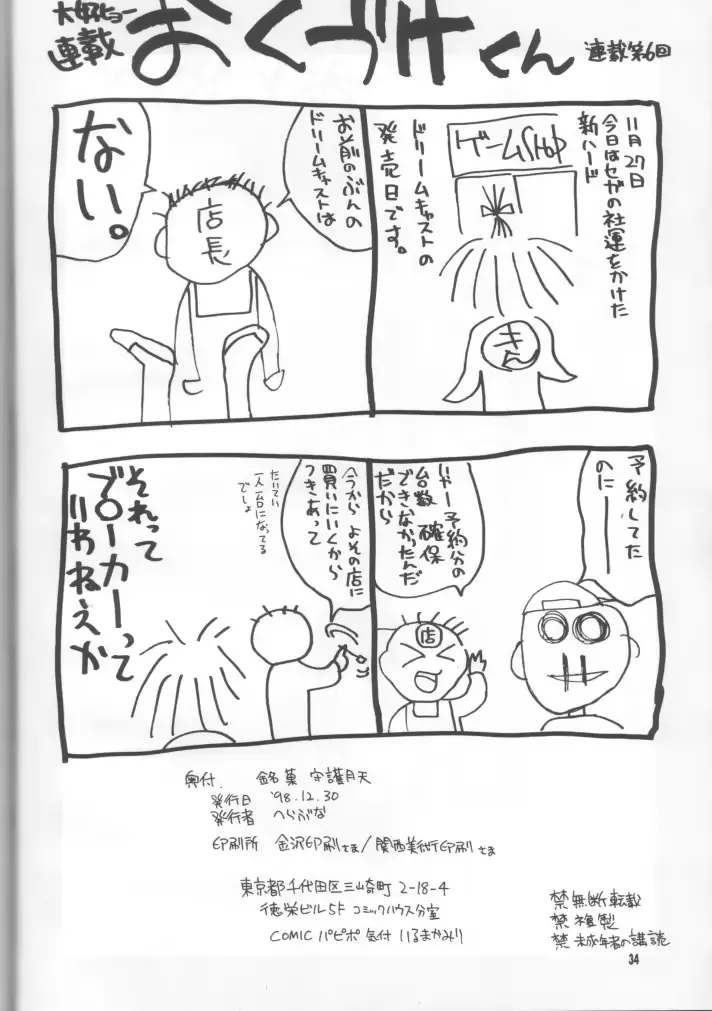 大好ヒョー
連載
おくづけくん
連載第6回
11月27日
今日はセガの社運をかけた
新ハード
ドリームキャストの
発売日です。
ゲームSHOP
きん
お前のぶんの
ドリームキャストは
ない。
店長
予約してた
のにーーー
いやー予約分の
台数確保
できなかったんだ
だから
店
今から よその店に
買いにいくから
つきあって
たいてい
一人一台になってる
でしょ
それって
ブローカーって
いわねえか
奥付.
銘菓 守護月天
発行日 '98.12.30
発行者 へらぶな
印刷所 金沢印刷さま/関西美術印刷さま
東京都千代田区三崎町 2-18-4
徳栄ビル5F コミックハウス分室
COMIC パピポ 気付 いるまかみり
禁無断転載
禁複製
禁未成年者の講読
34